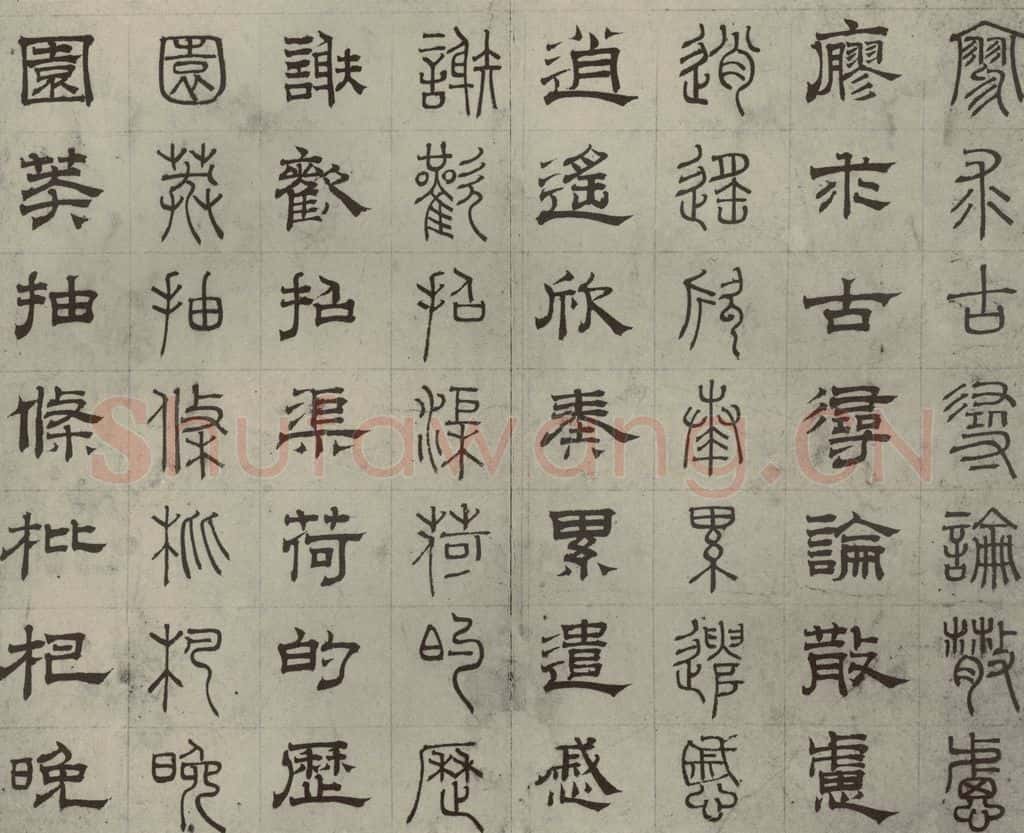 寥求古尋論散慮
廖求古尋論散慮
逍遙欣奏累遣慼
逍遙欣奏累遣慼
謝歡招渠荷的歷
謝歡招渠荷的歷
園莽抽條枇杷晚
園莽抽條枇杷晚
Shufawang.CN